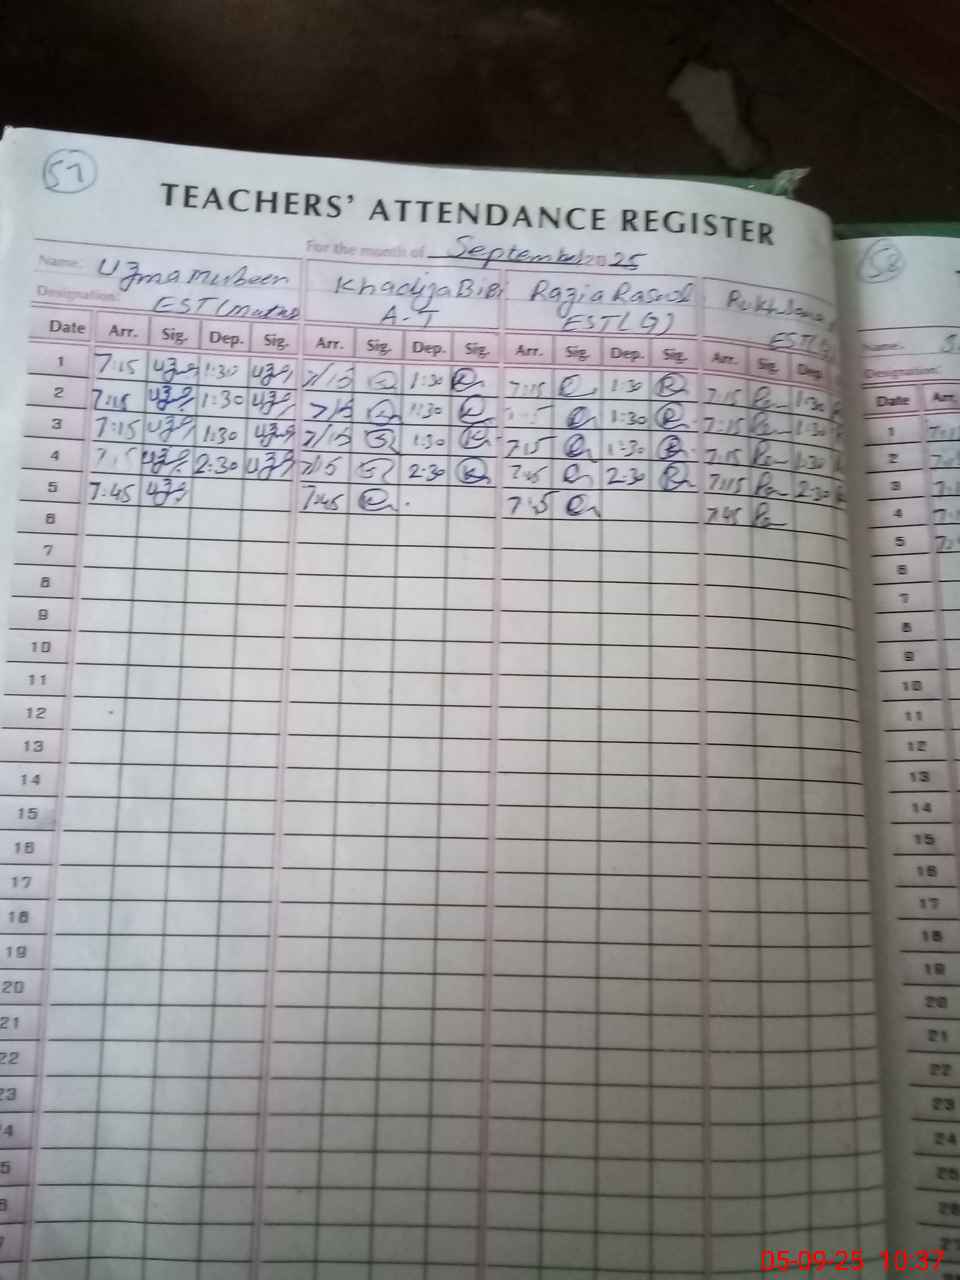 57
TEACHERS' ATTENDANCE REGISTER
For the month of September 2025
Name: Uzma Mubeen Khadija BiBi Razia Rasool
Designation: EST (Maths A-T EST(G)
Date Arr. Sig. Dep. Sig. Arr. Sig. Dep. Sig. Arr. Sig. Dep. Sig. Arr. Sig. Dep.
1 7:15 1:30 7/15 1:30 7:15 1:30 7:15 1:30
2 7:15 1:30 7/15 1:30 1:30 7:15 1:30
3 7:15 1:30 7/15 1:30 7:15 1:30 7:15 1:30
4 2:30 7/15 2:30 2:30 7:15 2:30
5 7:45 7:45 7:45
6
7
8
9
10
11
12
13
14
15
16
17
18
19
20
21
22
23
4
5
58
Name:
Designation:
Date Arr.
1
2
3
4
5
6
7
8
9
10
11
12
13
14
15
16
17
18
19
20
21
22
23
24
25
26
27
05-09-25 10:37